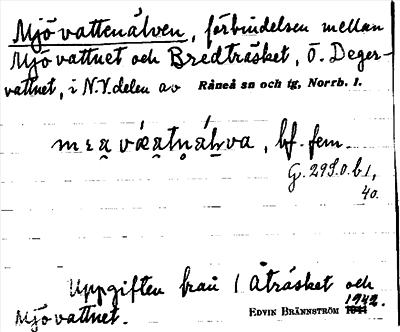 Mjövattenälven, förbindelsen mellan
Mjövattnet och Bredträsket, Ö. Deger-
vattnet, i N.V. delen av Råneå sn och tg, Norrb. l.
bf. fem.
G. 29 S.O. b 1,
40.
Uppgiften från 1 Åträsket och
Mjövattnet. EDVIN BRÄNNSTRÖM 1942.